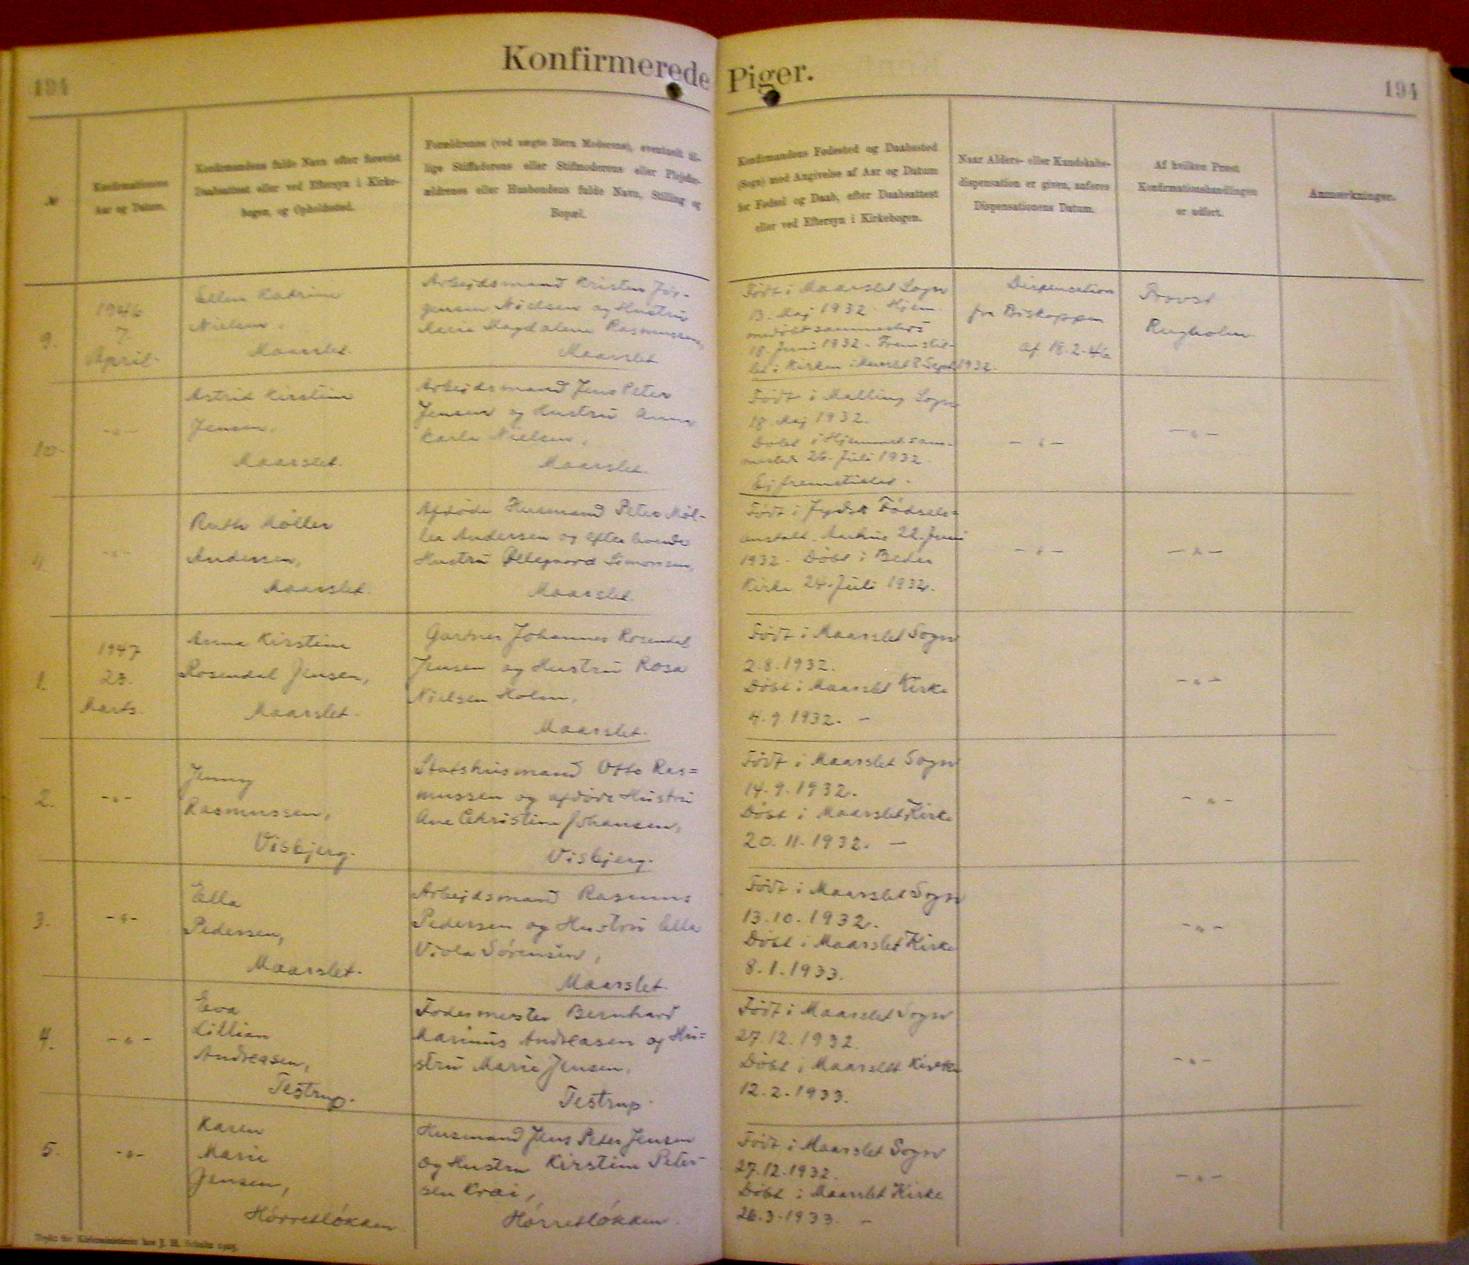 194
Konfirmerede Piger.
194
№
Konfirmationens
Aar og Datum.
Konfirmandens fulde Navn efter forevist
Daabsattest eller ved Eftersyn i Kirke-
bogen, og Opholdssted.
Forældrenes (ved uægte Børn Moderens), eventuelt til-
lige Stiffaderens eller Stifmoderens eller Plejefor-
ældrenes eller Husbondens fulde Navn, Stilling og
Bopæl.
Konfirmandens Fødested og Daabssted
(Sogn) med Angivelse af Aar og Datum
for Fødsel og Daab, efter Daabsattest
eller ved Eftersyn i Kirkebogen.
Naar Alders- eller Kundskabs-
dispensation er given, anføres
Dispensationens Datum.
Af hvilken Præst
Konfirmationshandlingen
er udført.
Anmærkninger.
9.
1946
7
April
Ellen Katrine
Nielsen.
Maarslet.
Arbejdsmand Kristen Jør-
gensen Nielsen og Hustru
Marie Magdalene Rasmussen,
Maarslet
Født i Maarslet Sogn
13. Maj 1932. Hjem-
medøbt sammesteds
18. Juni 1932. Fremstil-
let i Kirken i Maarslet Sept. 1932.
Dispensation
fra Biskoppen
af 18-2-46
Provst
Rugholm
10.
-"-
Astrid Kirstine
Jensen.
Maarslet.
Arbejdsmand Jens Peter
Jensen og Hustru Anna
Karla Nielsen,
Maarslet.
Født i Malling Sogn
18. Maj 1932.
Døbt i Hjemmet sam-
mesteds 26. Juli 1932.
Ej fremstillet.
-"-
-"-
11
-"-
Ruth Møller
Andersen,
Maarslet.
Afdøde Husmand Peter Møl-
ler Andersen og efterlevende
Hustru Ellegaard Simonsen,
Maarslet.
Født i Jydsk Fødsels=
anstalt, Aarhus 22. Juni
1932. Døbt i Beder
Kirke 24. Juli 1932.
-"-
-"-
1.
1947
23.
Marts.
Anna Kirstine
Rosendal Jensen,
Maarslet.
Gartner Johannes Rosendal
Jensen og Hustru Rosa
Nielsen Holm,
Maarslet.
Født i Maarslet Sogn
2.8.1932.
Døbt i Maarslet Kirke
4.9.1932. -
-"-
2.
-"-
Jenny
Rasmussen,
Visbjerg.
Statshusmand Otto Ras=
mussen og afdøde Hustru
Ane Christine Johansen,
Visbjerg.
Født i Maarslet Sogn
14.9.1932.
Døbt i Maarslet Kirke
20.11.1932. -
-"-
3.
-"-
Ella
Pedersen,
Maarslet.
Arbejdsmand Rasmus
Pedersen og Hustru Ella
Viola Sørensen,
Maarslet.
Født i Maarslet Sogn
13.10.1932.
Døbt i Maarslet Kirke
8.1.1933.
-"-
4.
-"-
Eva
Lillian
Andreasen,
Testrup.
Fodermester Bernhard
Marinus Andreasen og Hu=
stru Marie Jensen,
Testrup.
Født i Maarslet Sogn
27.12.1932.
Døbt i Maarslet Kirke
12.2.1933.
-"-
5.
-"-
Karen
Marie
Jensen,
Hørretløkken
Husmand Jens Peter Jensen
og Hustru Kirstine Peter-
sen Kræi,
Hørretløkken.
Født i Maarslet Sogn
27.12.1932.
Døbt i Maarslet Kirke
26.3.1933. -
-"-
Trykt for Kirkeministeriet hos J. H. Schultz 1925.